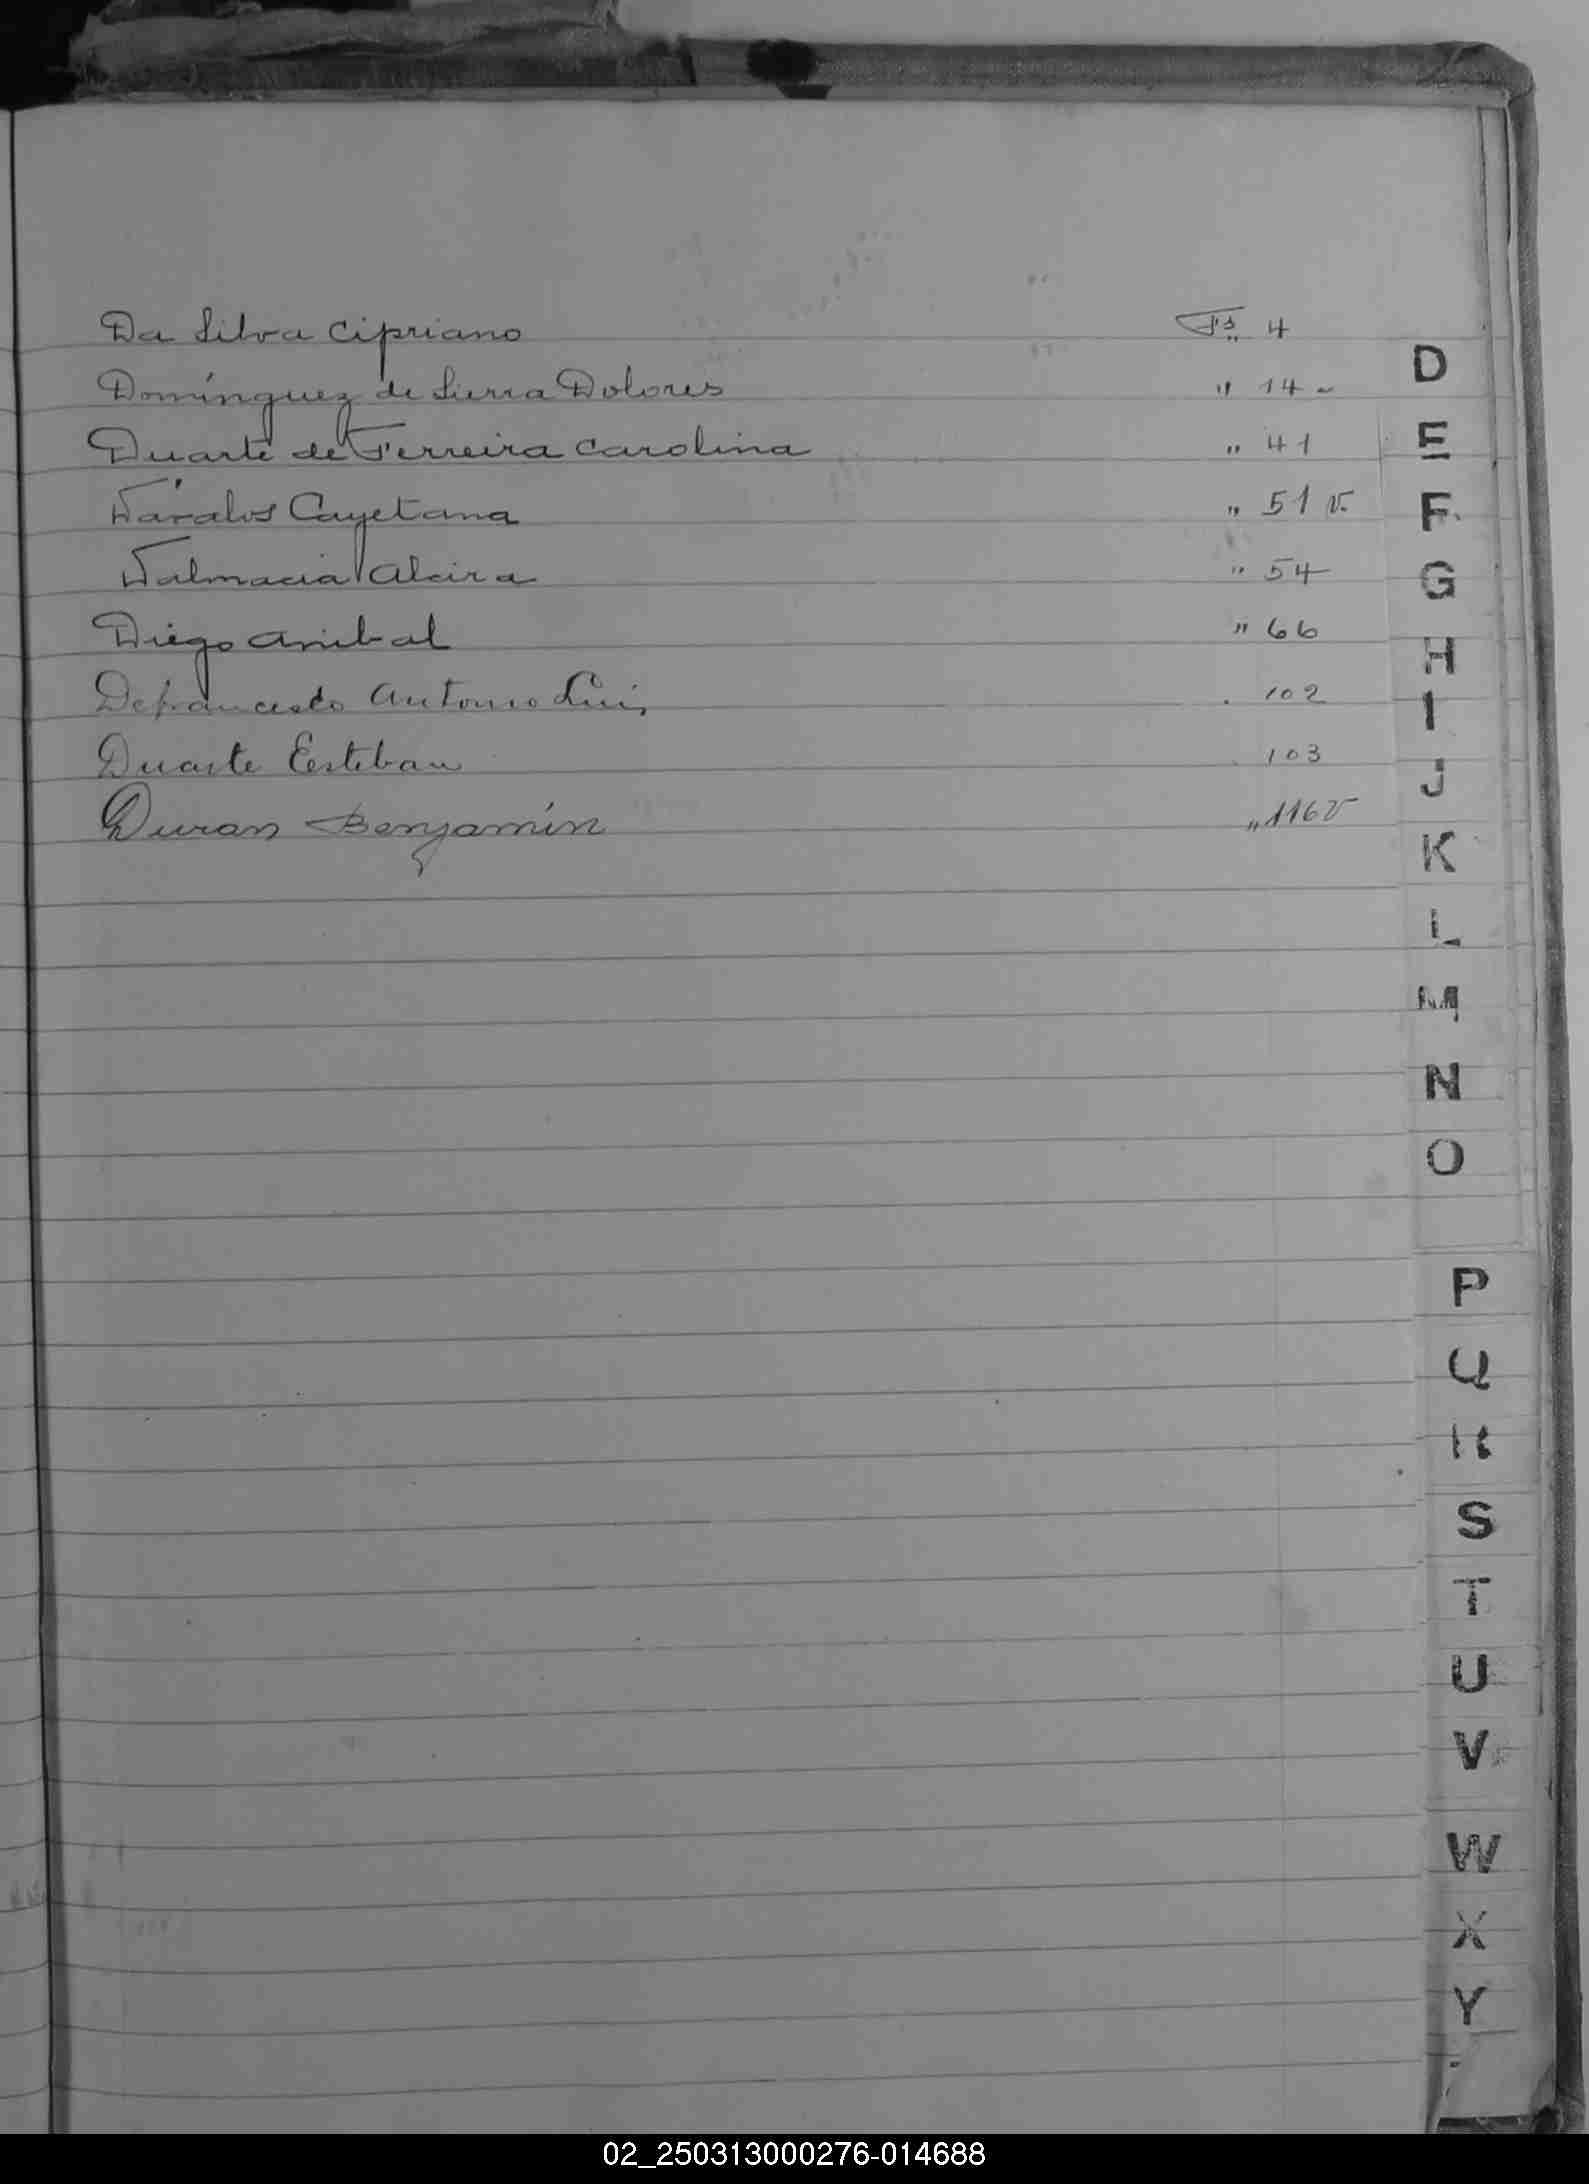 Da Silva Cipriano Fs. 4
Domínguez de Sierra Dolores " 14 -
Duarte de Ferreira Carolina " 41
Dávalos Cayetana " 51 v.
Dalmacia Alcira " 54
Diego Anibal " 66
Defrancesco Antonio Luis . 102
Duarte Esteban . 103
Duran Benjamín " 116 v
D
E
F
G
H
I
J
K
L
M
N
O
P
Q
R
S
T
U
V
W
X
Y
02_250313000276-014688